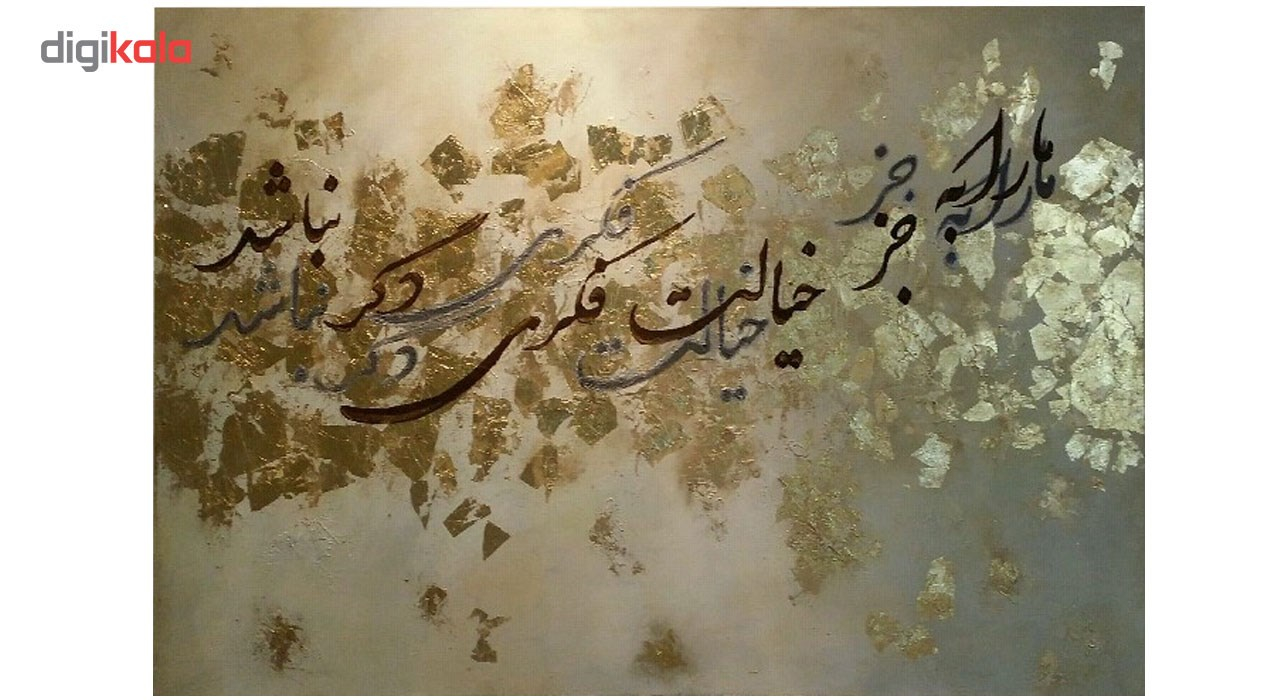 digikala
ما را به جز خیالت فکری دگر نباشد